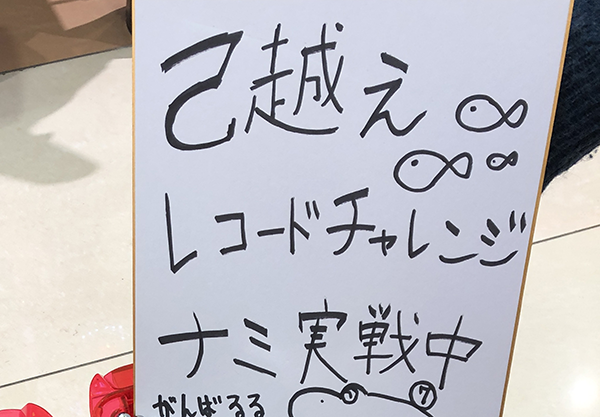 己越え
レコードチャレンジ
ナミ実戦中
がんばるる